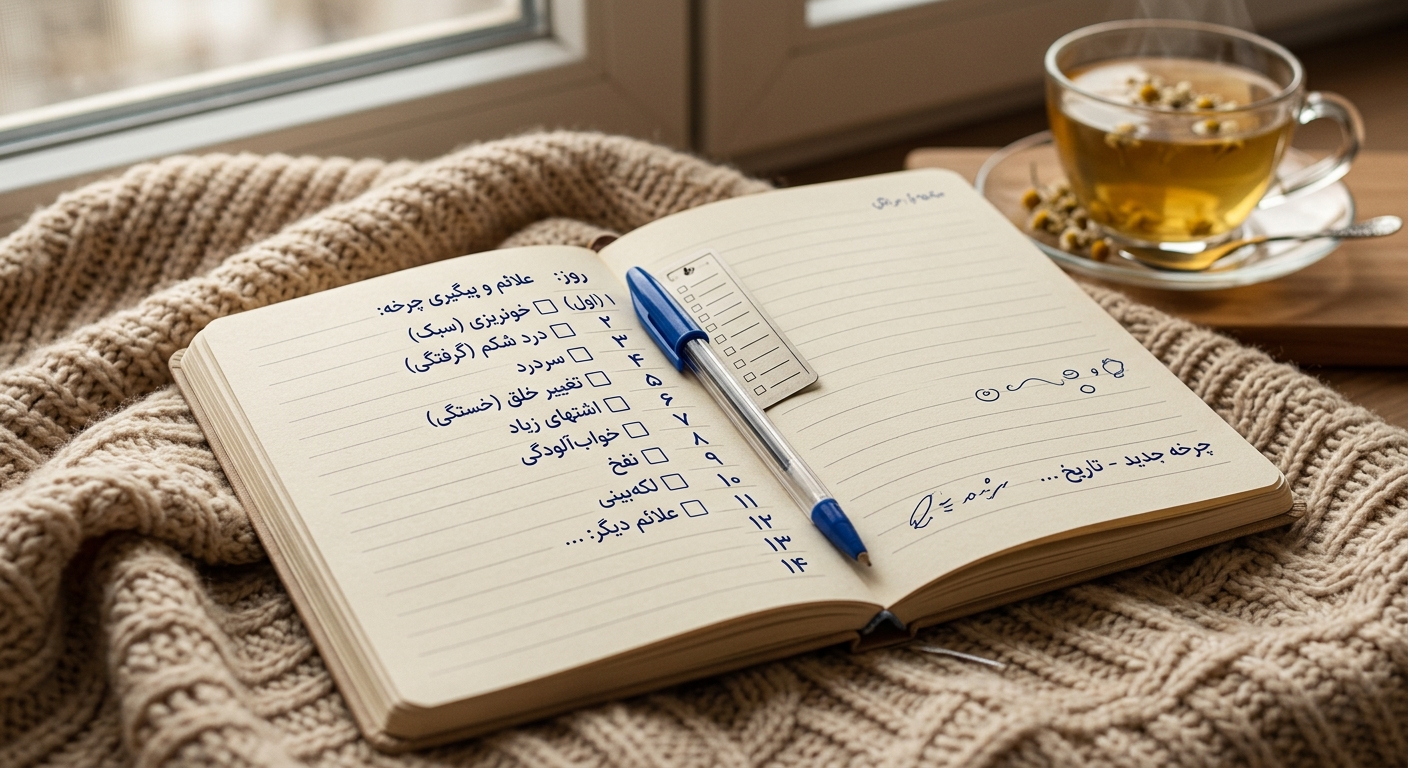 روز: علائم و پیگیری چرخه:
۱ (اول) خونریزی (سبک)
۲ درد شکم (گرفتگی)
۳ سردرد
۴ تغییر خلق (خستگی)
۵ اشتهای زیاد
۶ خواب‌آلودگی
۷ نفخ
۸ لکه‌بینی
۹ علائم دیگر: ...
۱۰
۱۱
۱۲
۱۳
۱۴
چرخه جدید - تاریخ ...